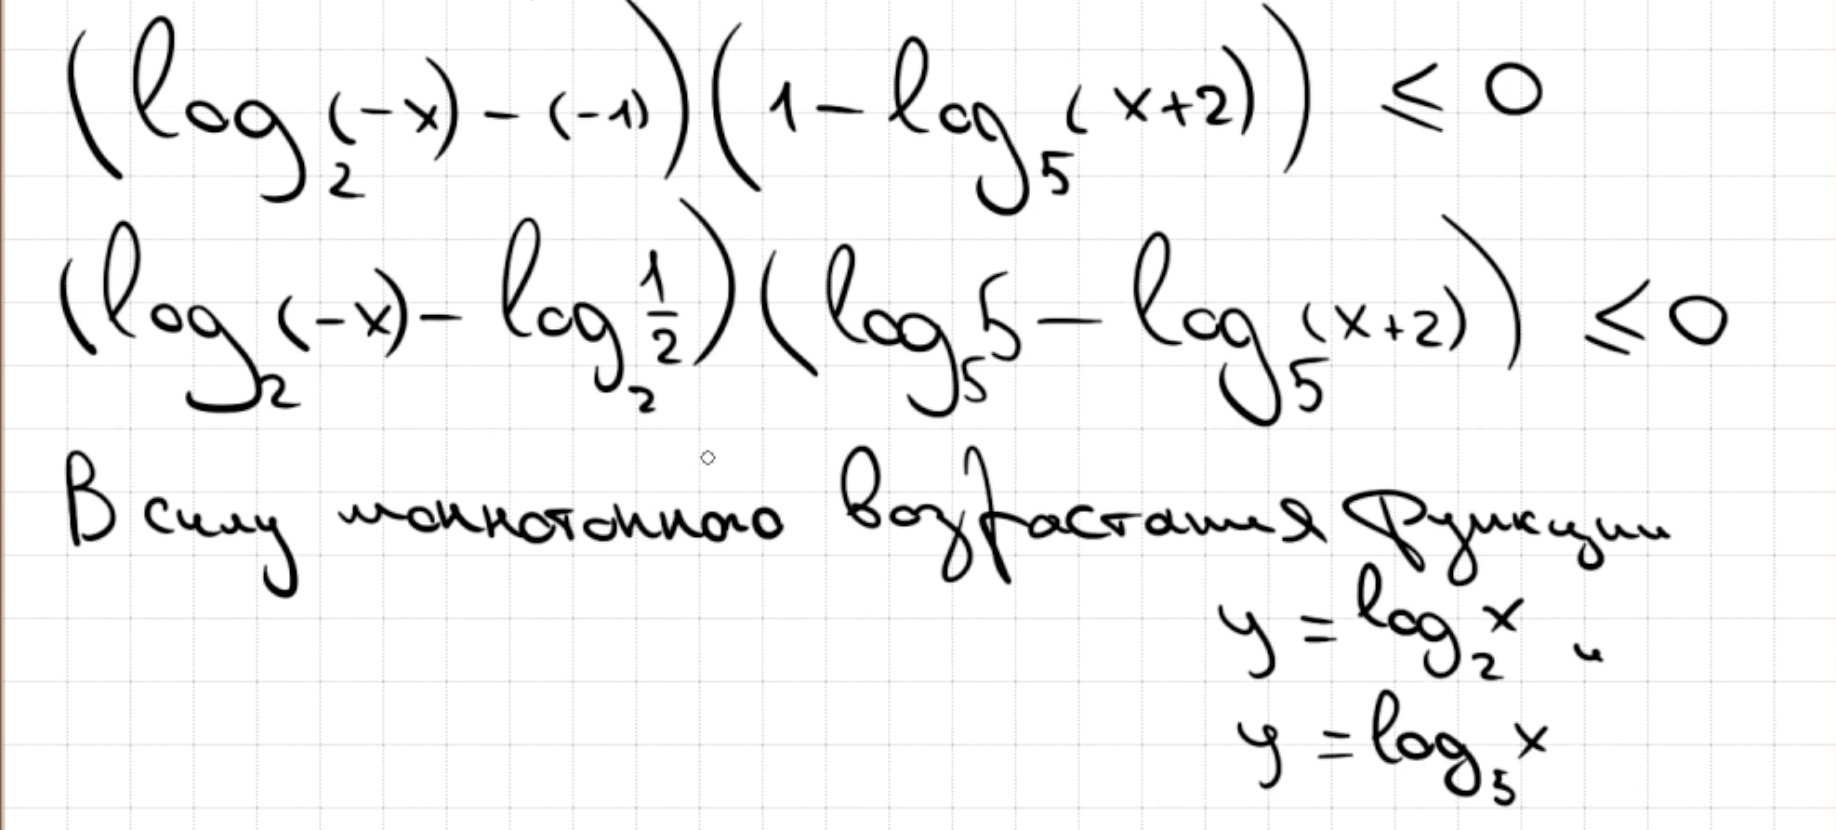 (log₂(-x) - (-1))(1 - log₅(x+2)) ≤ 0
(log₂(-x) - log₂ 1/2)(log₅5 - log₅(x+2)) ≤ 0
В силу монотонного возрастания функции
y = log₂x и
y = log₅x